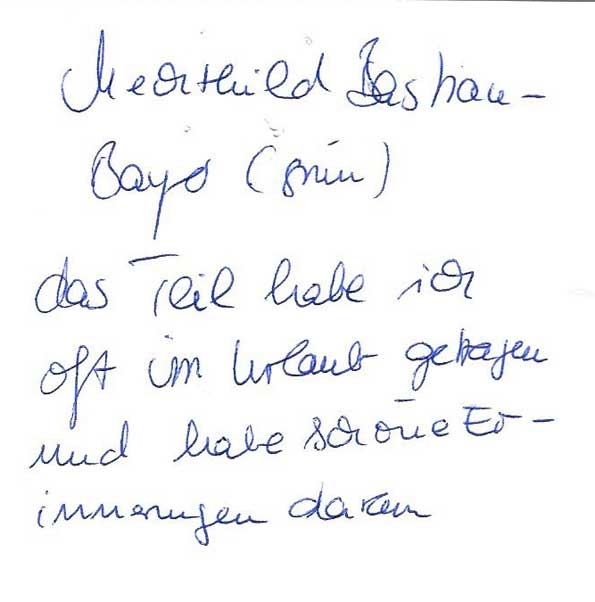 Mechthild Bastian-
Bayo (grün)
das Teil habe ich
oft im Urlaub getragen
und habe schöne Er-
innerungen daran